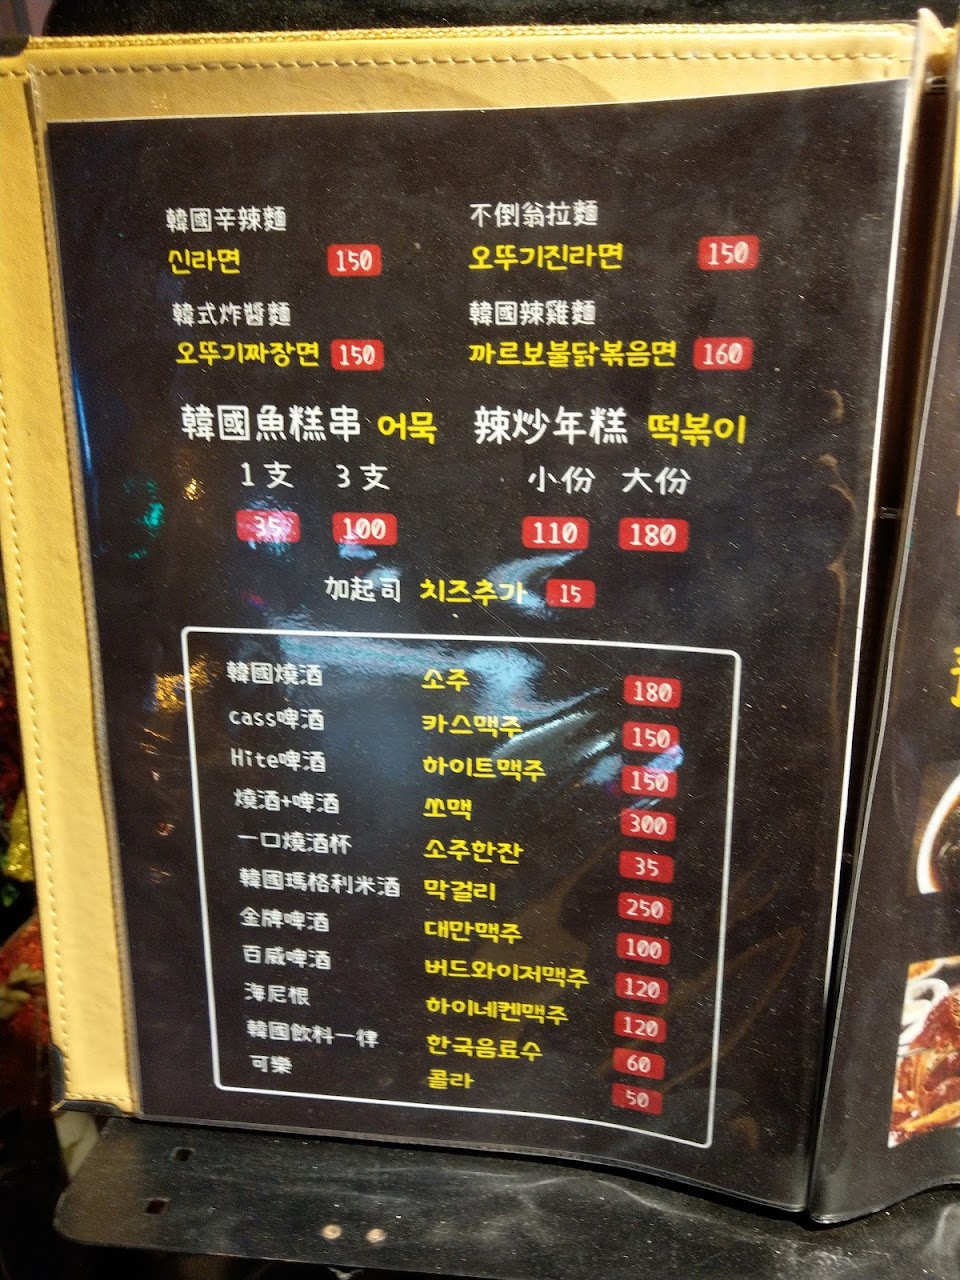 韓國辛辣麵
신라면 150
不倒翁拉麵
오뚜기진라면 150
韓式炸醬麵
오뚜기짜장면 150
韓國辣雞麵
까르보불닭볶음면 160
韓國魚糕串 어묵
1支 3支
35 100
辣炒年糕 떡볶이
小份 大份
110 180
加起司 치즈추가 15
韓國燒酒 소주 180
cass啤酒 카스맥주 150
Hite啤酒 하이트맥주 150
燒酒+啤酒 쏘맥 300
一口燒酒杯 소주한잔 35
韓國瑪格利米酒 막걸리 250
金牌啤酒 대만맥주 100
百威啤酒 버드와이저맥주 120
海尼根 하이네켄맥주 120
韓國飲料一律 한국음료수 60
可樂 콜라 50